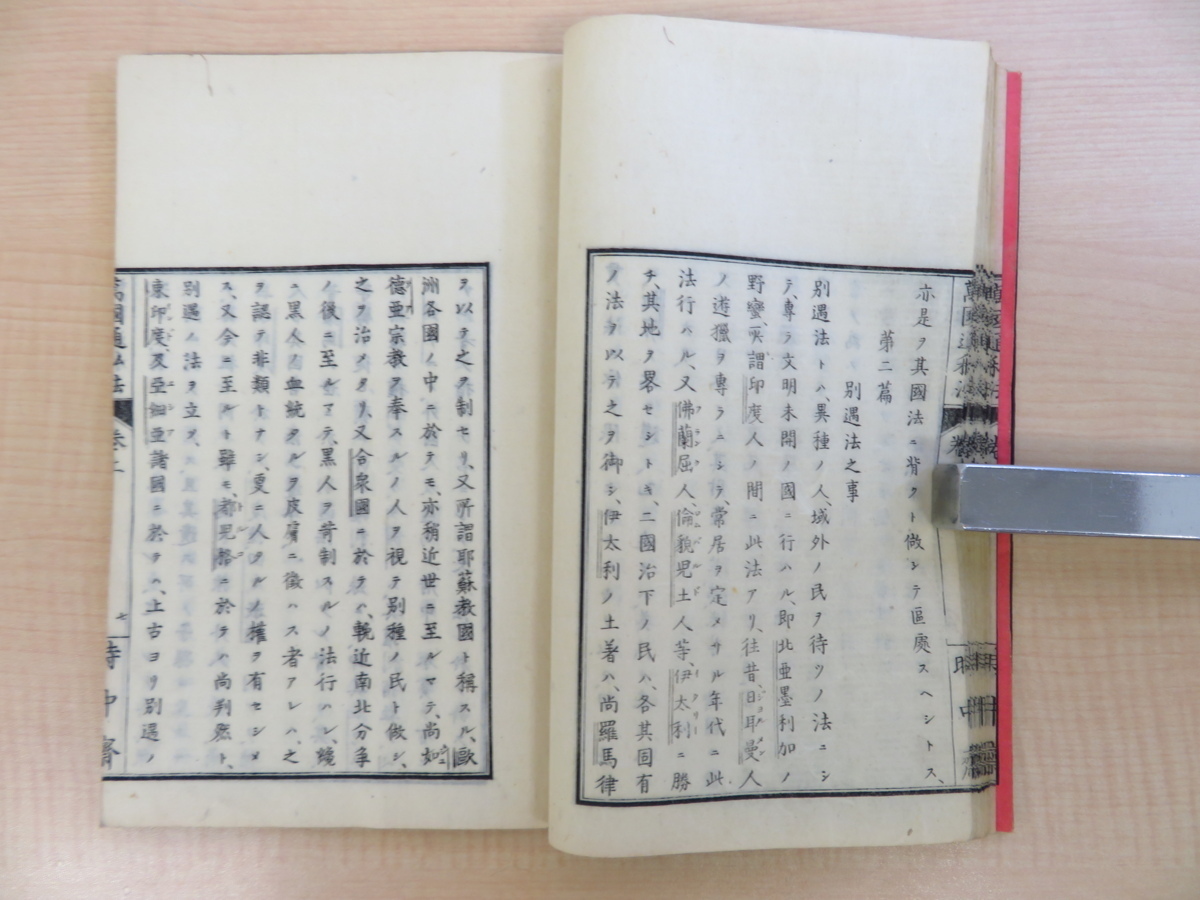 亦是ヲ其國法ニ背クト做シテ區處スヘシトス、
第二篇
別遇法之事
別遇法トハ、異種ノ人、域外ノ民ヲ待ツノ法ニシ
テ、專ラ文明未開ノ國ニ行ハル、即北亞墨利加ノ
野蠻、所謂印度人ノ間ニ此法アリ、往昔日耳曼人
ノ遊獵ヲ專ラニシテ、常居ヲ定メサル年代ニ此
法行ハル、又佛蘭屈人、倫貌兒土人等、伊太利ニ勝
チ、其地ヲ畧セシトキ、二國治下ノ民ハ、各其固有
ノ法ヲ以テ之ヲ御シ、伊太利ノ土著ハ、尚羅馬律
ヲ以テ之ヲ制セリ、又所謂耶蘇教國ト稱スル、歐
洲各國ノ中ニ於テモ、亦稍近世ニ至ルマテ、尚如
德亞宗教ヲ奉スルノ人ヲ視テ別種ノ民ト做シ、
之ヲ治メタリ、又合衆國ニ於テハ、輓近南北分爭
ノ後ニ至ルマテ、黑人ヲ苛制スルノ法行ハレ、纔
ニ黑人ノ血統タルヲ皮膚ニ徵ハス者アレハ、之
ヲ認テ非類トナシ、更ニ人タルノ權ヲ有セシメ
ス、又今ニ至ルト雖モ、都兒格ニ於テハ尚判然ト、
別遇ノ法ヲ立ツ、
東印度及亞細亞諸國ニ於テハ、上古ヨリ別遇ノ
萬國通私法
卷二
七
時中齋